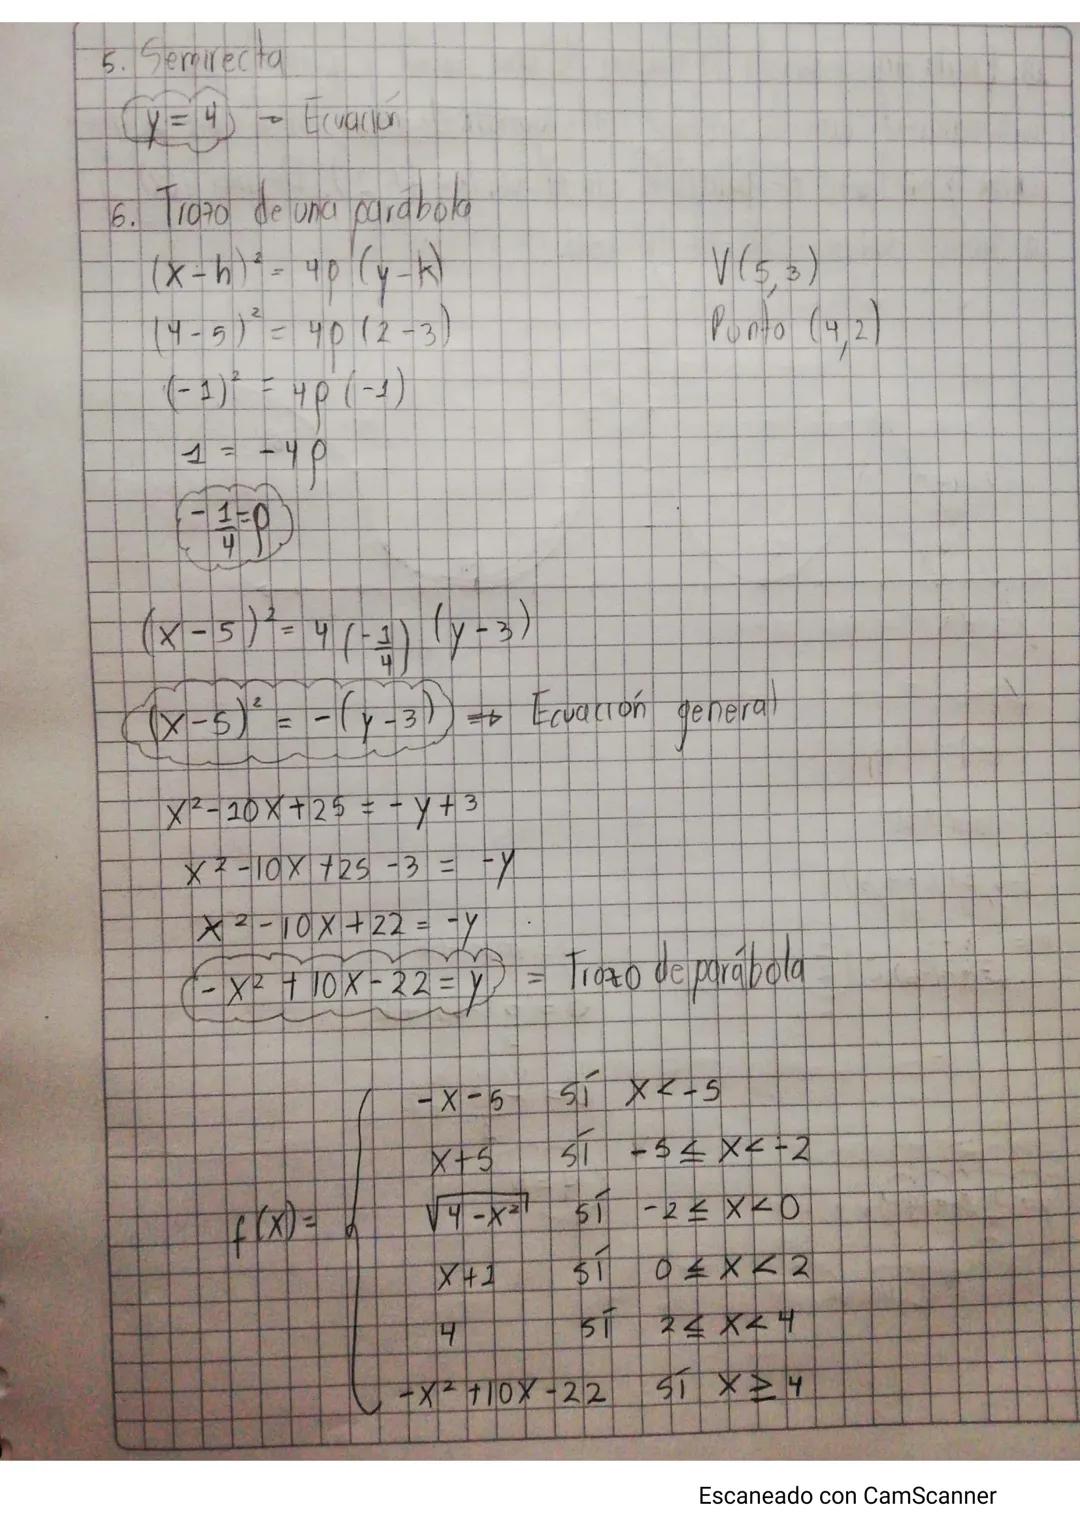 5. Semirecta
y = 4 → Ecuación
6. Trazo de una parábola
(x-h)² = 4p (y-k) V(5,3)
(4-5)² = 4p (2-3) Punto (4,2)
(-1)² = 4p (-1)
1 = -4p
-1/4 = p
(x-5)² = 4 (-1/4) (y-3)
(x-5)² = -(y-3) ⇒ Ecuación general
x²-10x+25 = -y+3
x²-10x+25-3 = -y
x²-10x+22 = -y
-x²+10x-22 = y = Trazo de parábola
-x-5 sí x<-5
x+5 sí -5≤x<-2
f(x)= √4-x² sí -2≤x<0
x+1 sí 0≤x<2
4 sí 2≤x<4
-x²+10x-22 sí x≥4
Escaneado con CamScanner